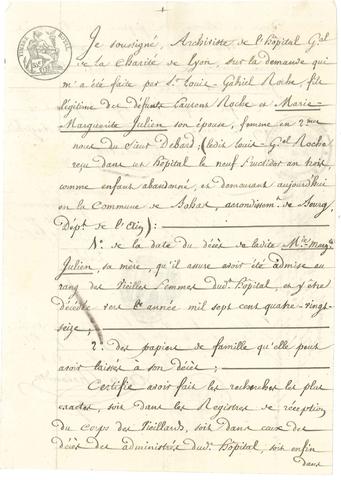 Je soussigné, Archiviste de l'hôpital Gal
de la Charité de Lyon, sur la demande qui
m'a été faite par Sr Louis-Gabriel Roche, fils
légitime des défunts Laurent Roche et Marie-
Marguerite Julien son épouse, femme en 2mes
noces du Sieur Debard; (ledit Louis-Gel Roche
reçu dans cet hôpital le neuf Fructidor an trois,
comme enfant abandonné, et demeurant aujourd'hui
en la Commune de Bohas, arrondissemt de Bourg,
Dépt de l'Ain):
1o de la date du décès de ladite Mie Margte
Julien, sa mère, qu'il assure avoir été admise au
rang des Vieilles femmes dudt hôpital, et y être
décédée vers l'année mil sept cent quatre-vingt-
seize;
2o des papiers de famille qu'elle peut
avoir laissés à son décès;
Certifie avoir fait les recherches les plus
exactes, soit dans les Registres de réception
du Corps des Vieillards, soit dans ceux des
décès des administrés dudt hôpital, soit enfin
dans